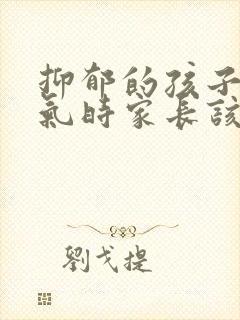 抑郁的孩子
氣時家長該
劉戈提